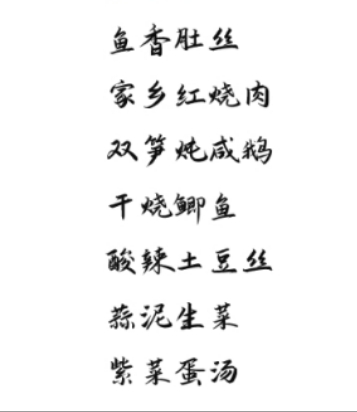 鱼香肚丝
家乡红烧肉
双笋炖咸鹅
干烧鲫鱼
酸辣土豆丝
蒜泥生菜
紫菜蛋汤